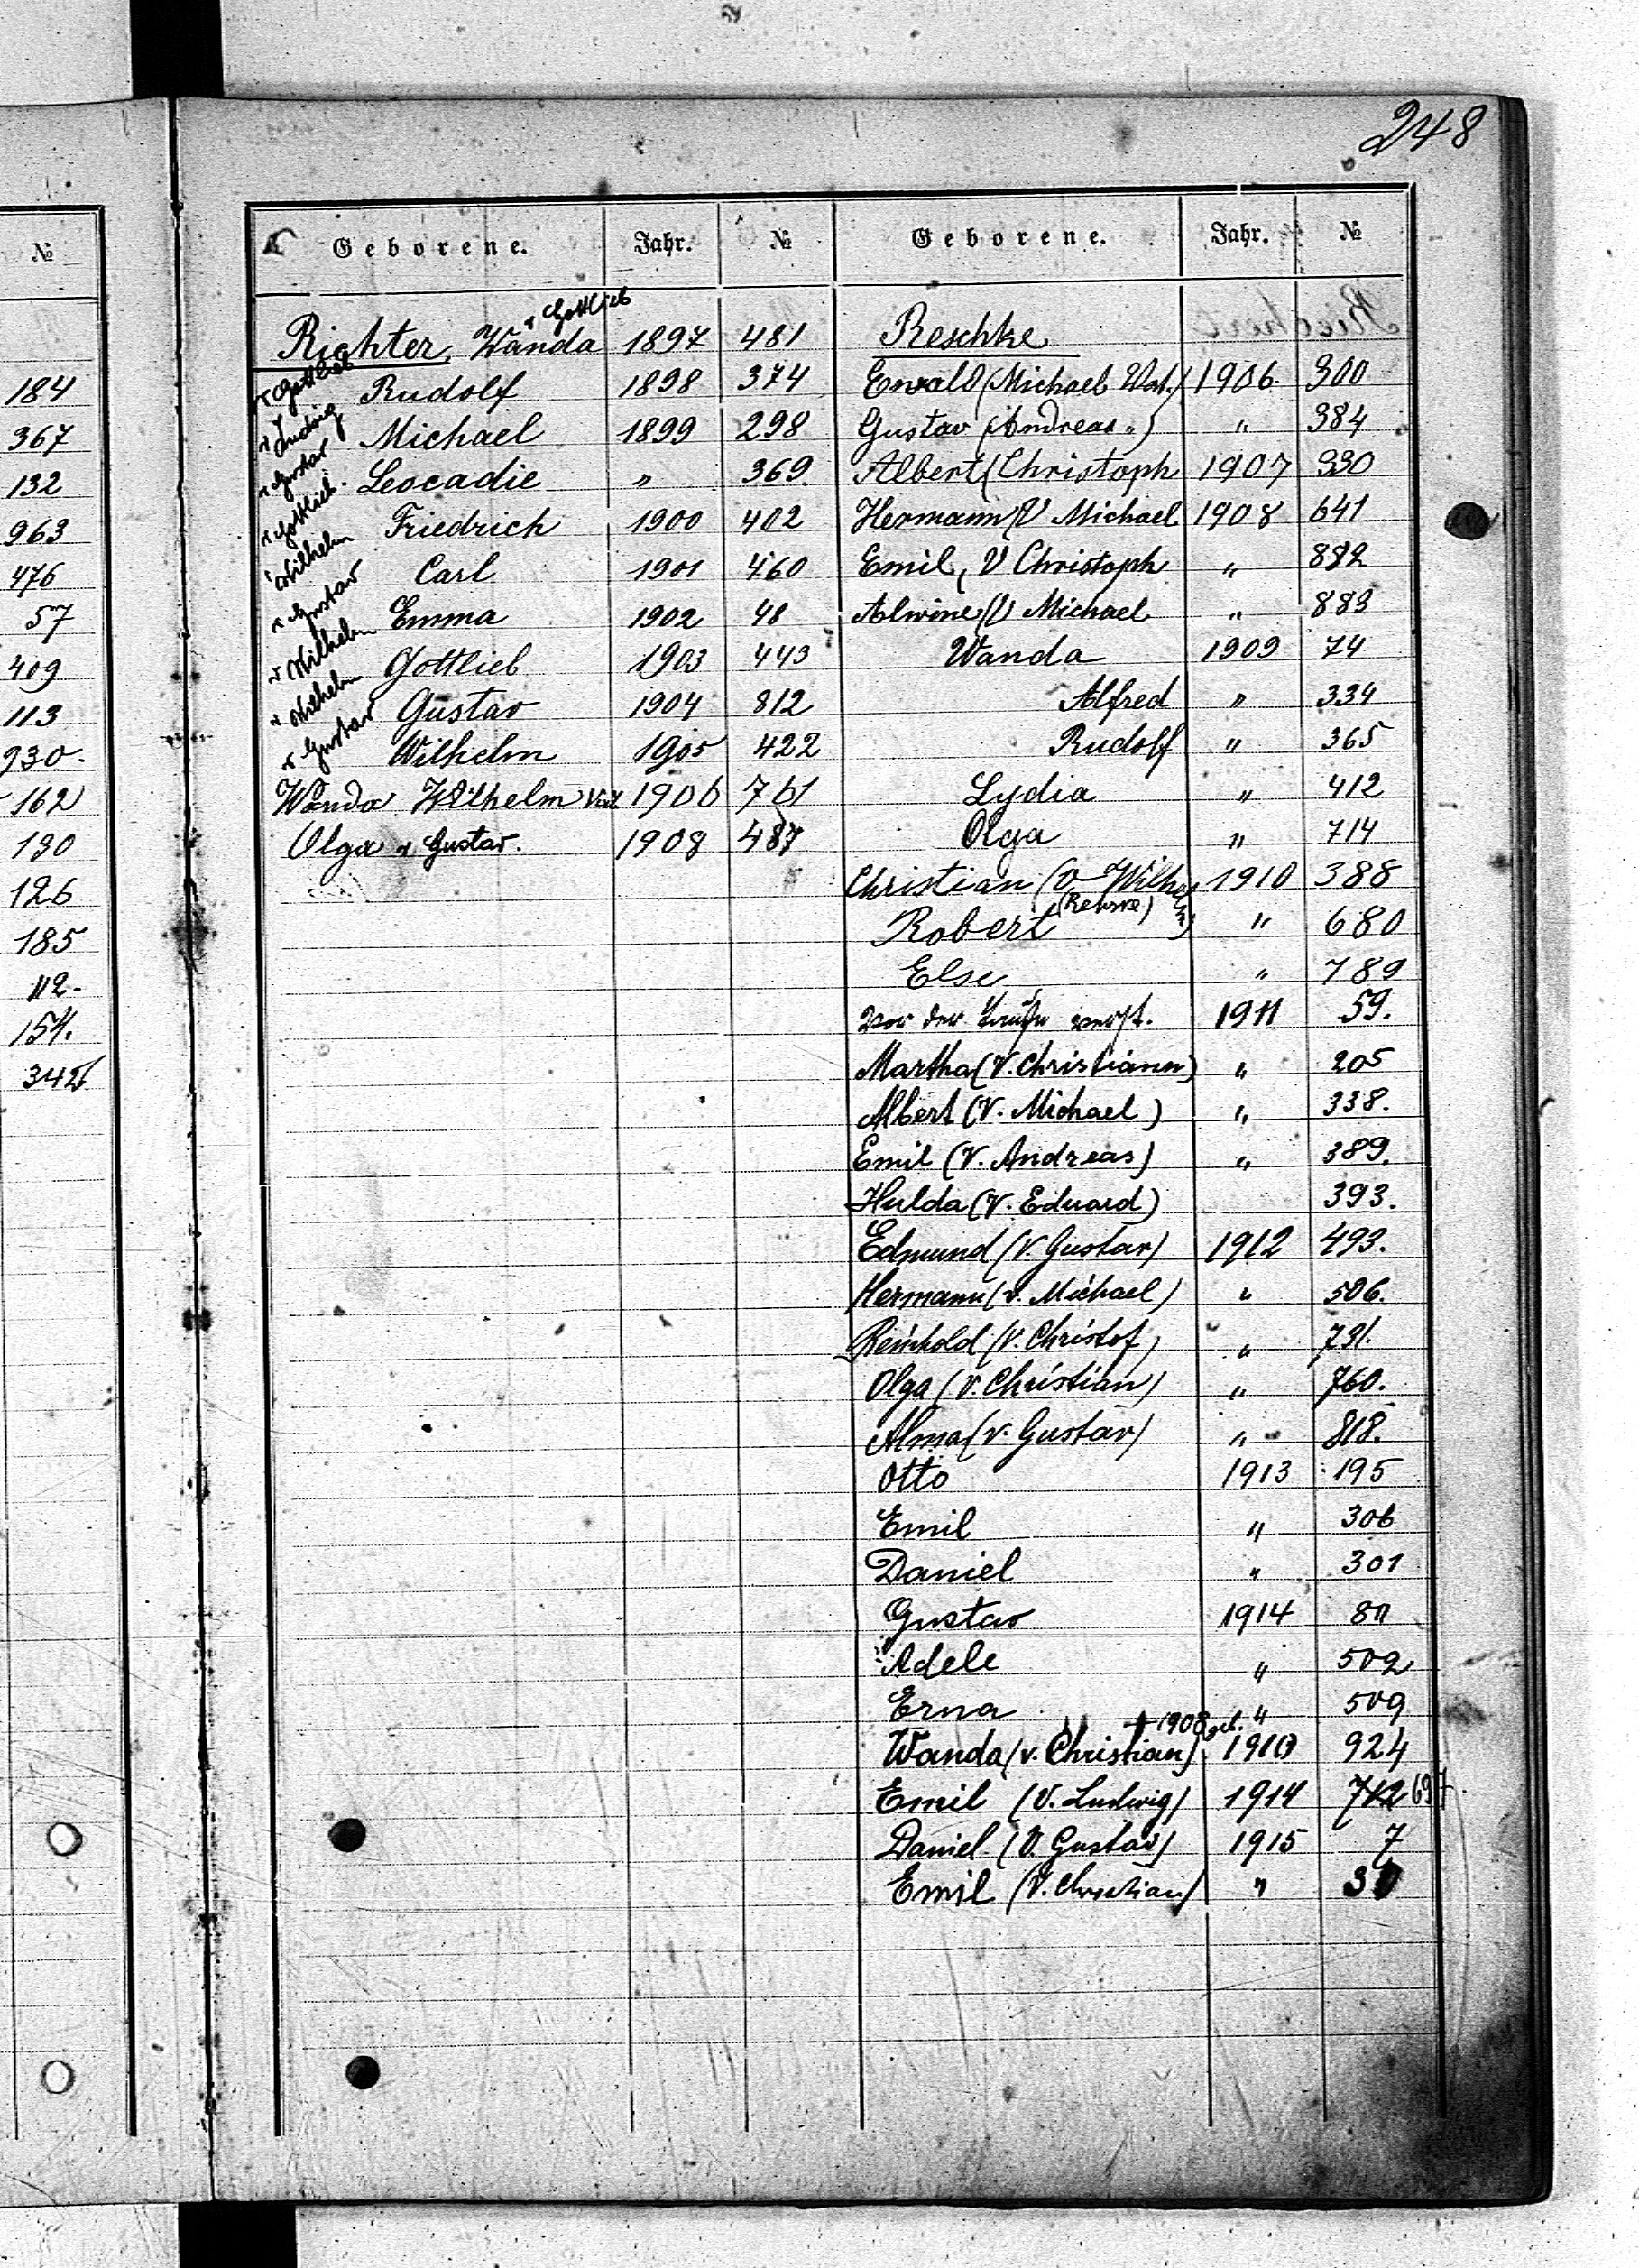 248
№
184
367
132
963
476
57
409
113
930.
162
130
126
185
112.
154.
342
Geborene. Jahr. №
v Gottlieb
Richter, Wanda 1897 481
v Gottlieb Rudolf 1898 374
v Ludwig Michael 1899 298
v Gustav Leocadie " 369
v Gottlieb. Friedrich 1900 402
v Wilhelm Carl 1901 460
v Gustav Emma 1902 48
v Wilhelm Gottlieb 1903 443
v Wilhelm Gustav 1904 812
v Gustav Wilhelm 1905 422
Wanda Wilhelm 1906 761
Olga v Gustav. 1908 487
Geborene. Jahr. №
Reschke
Ewald (Michael Vat.) 1906 300
Gustav (Andreas ") " 384
Albert (Christoph 1907 330
Hermann (V Michael 1908 641
Emil, V Christoph " 882
Alwine (V Michael " 883
Wanda 1909 74
Alfred " 334
Rudolf " 365
Lydia " 412
Olga " 714
Christian (V Wilhelm) 1910 388
Robert " 680
Else " 789
Vor der Taufe verst. 1911 59.
Martha (V. Christiann) " 205
Albert (V. Michael) " 338.
Emil (V. Andreas) " 389.
Hulda (V. Eduard) 393.
Edmund (V. Gustav) 1912 493.
Hermann (V. Michael) " 506.
Reinhold (V. Christof) " 731.
Olga (V. Christian) " 760.
Alma (V. Gustav) " 818.
Otto 1913 195
Emil " 306
Daniel " 301
Gustav 1914 80
Adele " 502
Erna " 509
1908 geb.
Wanda (v. Christian) 1910 924
Emil (V. Ludwig) 1914 712 697
Daniel (V. Gustav) 1915 7
Emil (V. Christian) "